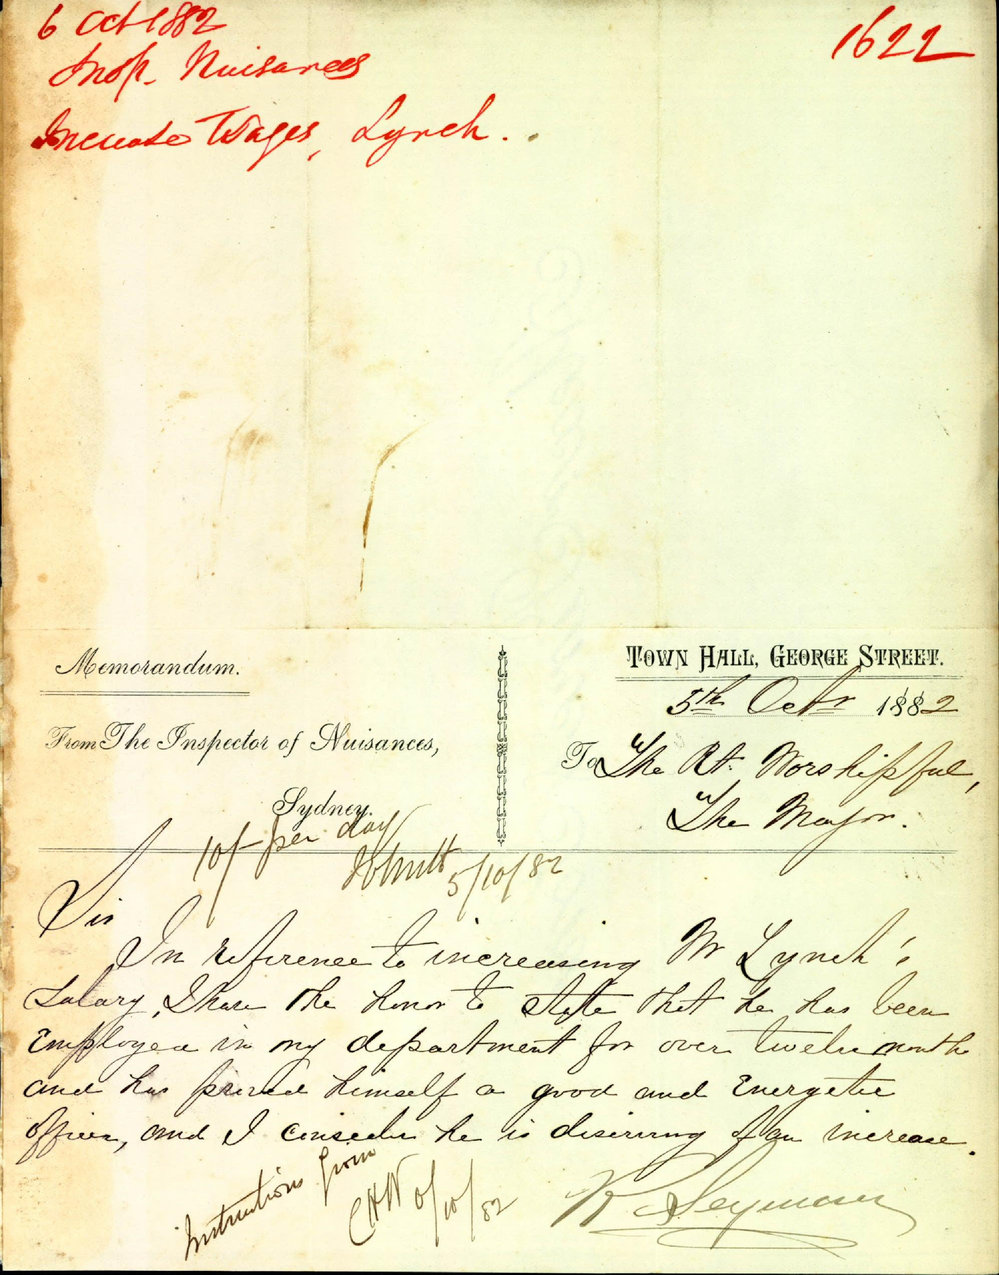 6 Oct 1882
1622
Insp. Nuisances
Increase Wages, Lynch.
Memorandum.
TOWN HALL, GEORGE STREET.
5th Octr 1882
From The Inspector of Nuisances,
Sydney.
To The Rt. Worshipful,
The Mayor.
10/- per day
5/10/82
Sir
In reference to increasing Mr Lynch's
Salary, I have the honor to state that he has been
Employed in my department for over twelve months
and has proved himself a good and Energetic
officer, and I consider he is deserving of an increase.
Instructions from
6/10/82
R Seymour